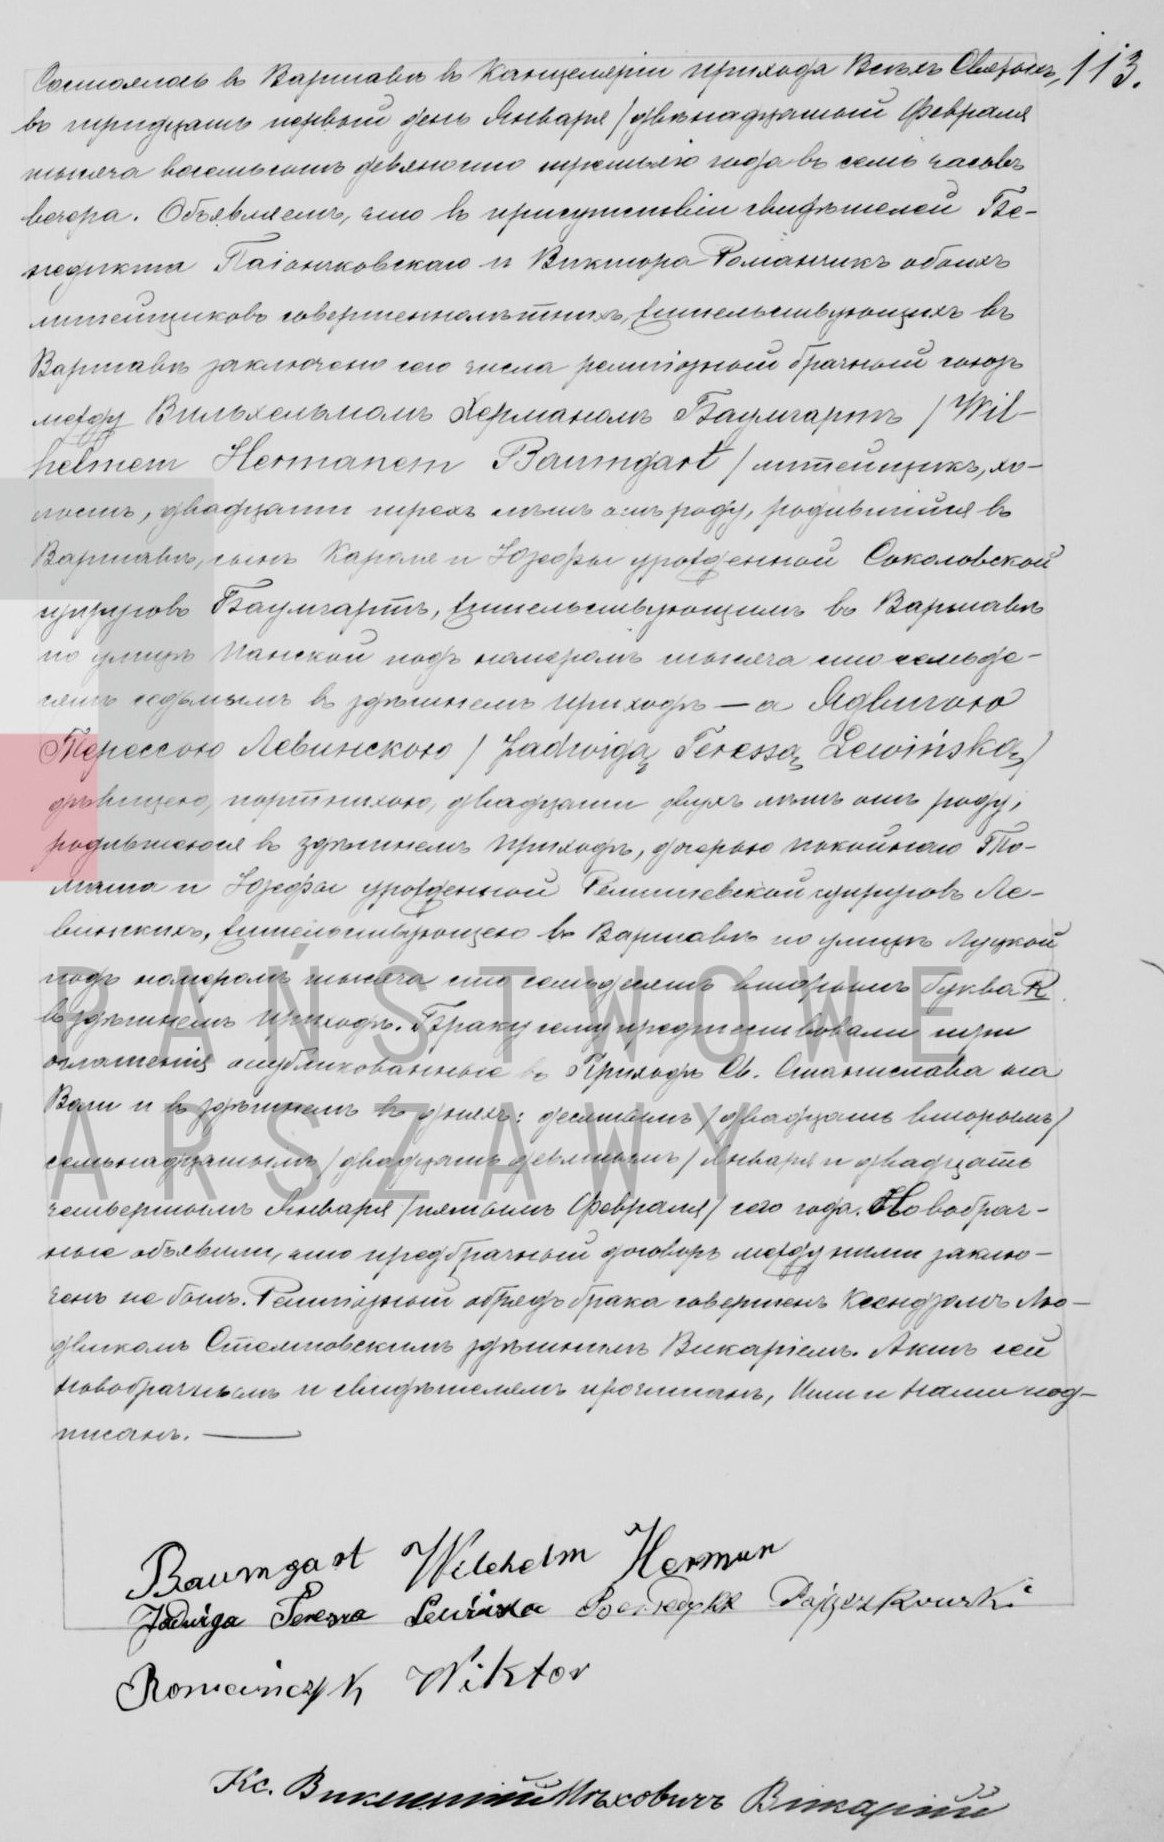 Состоялось въ Варшавѣ въ Канцеляріи прихода Всѣхъ Святыхъ, 113.
въ тридцать первый день Января /двѣнадцатый Февраля
тысяча восемьсотъ девяносто третьяго года въ семь часовъ
вечера. Объявляемъ, что въ присутствіи свидѣтелей Бе-
недикта Паіончковскаго и Виктора Романчикъ обоихъ
литейщиковъ совершеннолѣтнихъ, жительствующихъ въ
Варшавѣ заключено сего числа религіозный брачный союзъ
между Вильхельмомъ Херманомъ Баумгартъ /Wil-
helmem Hermanem Baumgart/ литейщикъ, хо-
лостъ, двадцати трехъ лѣтъ отъ роду, родившійся въ
Варшавѣ, сынъ Кароля и Юзефы урожденной Соколовской
супруговъ Баумгартъ, жительствующимъ въ Варшавѣ
по улицѣ Панской подъ номеромъ тысяча сто семьде-
сятъ седьмымъ въ здѣшнемъ приходѣ — а Ядвигою
Терессою Левинскою /Jadwigą Teressą Lewińską/
дѣвицею, портнихою, двадцати двухъ лѣтъ отъ роду,
родившеюся въ здѣшнемъ приходѣ, дочерью покойнаго То-
маша и Юзефы урожденной супруговъ Ле-
винскихъ, жительствующею въ Варшавѣ по улицѣ Луцкой
подъ номеромъ тысяча сто семьдесятъ вторымъ буква R
въ здѣшнемъ приходѣ. Браку сему предшествовали три
оглашенія опубликованные въ Приходѣ Св. Станислава на
Воли и въ здѣшнемъ въ дняхъ: десятымъ /двадцать вторымъ/
семьнадцатымъ /двадцать девятымъ/ Января и двадцать
четвертымъ Января /пятымъ Февраля/ сего года. Новобрач-
ные объявили, что предбрачный договоръ между ними заклю-
ченъ не былъ. Религіозный обрядъ брака совершенъ Ксендзомъ Лю-
двикомъ здѣшнимъ Викаріемъ. Актъ сей
новобрачнымъ и свидѣтелямъ прочитанъ, Ими и Нами под-
писанъ. —
PAŃSTWOWE
ARSZAWY
Baumgart Wilchelm Herman
Jadwiga Teressa Lewińska Benedykt Pajączkowski
Romańczyk Wiktor
Кс. Викарій